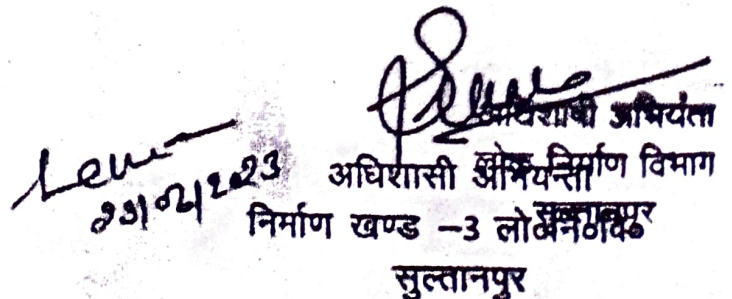 अधिशासी अभियंता
लोक निर्माण विभाग
सुल्तानपुर
अधिशासी अभियन्ता
निर्माण खण्ड –3 लो०नि०वि०
सुल्तानपुर